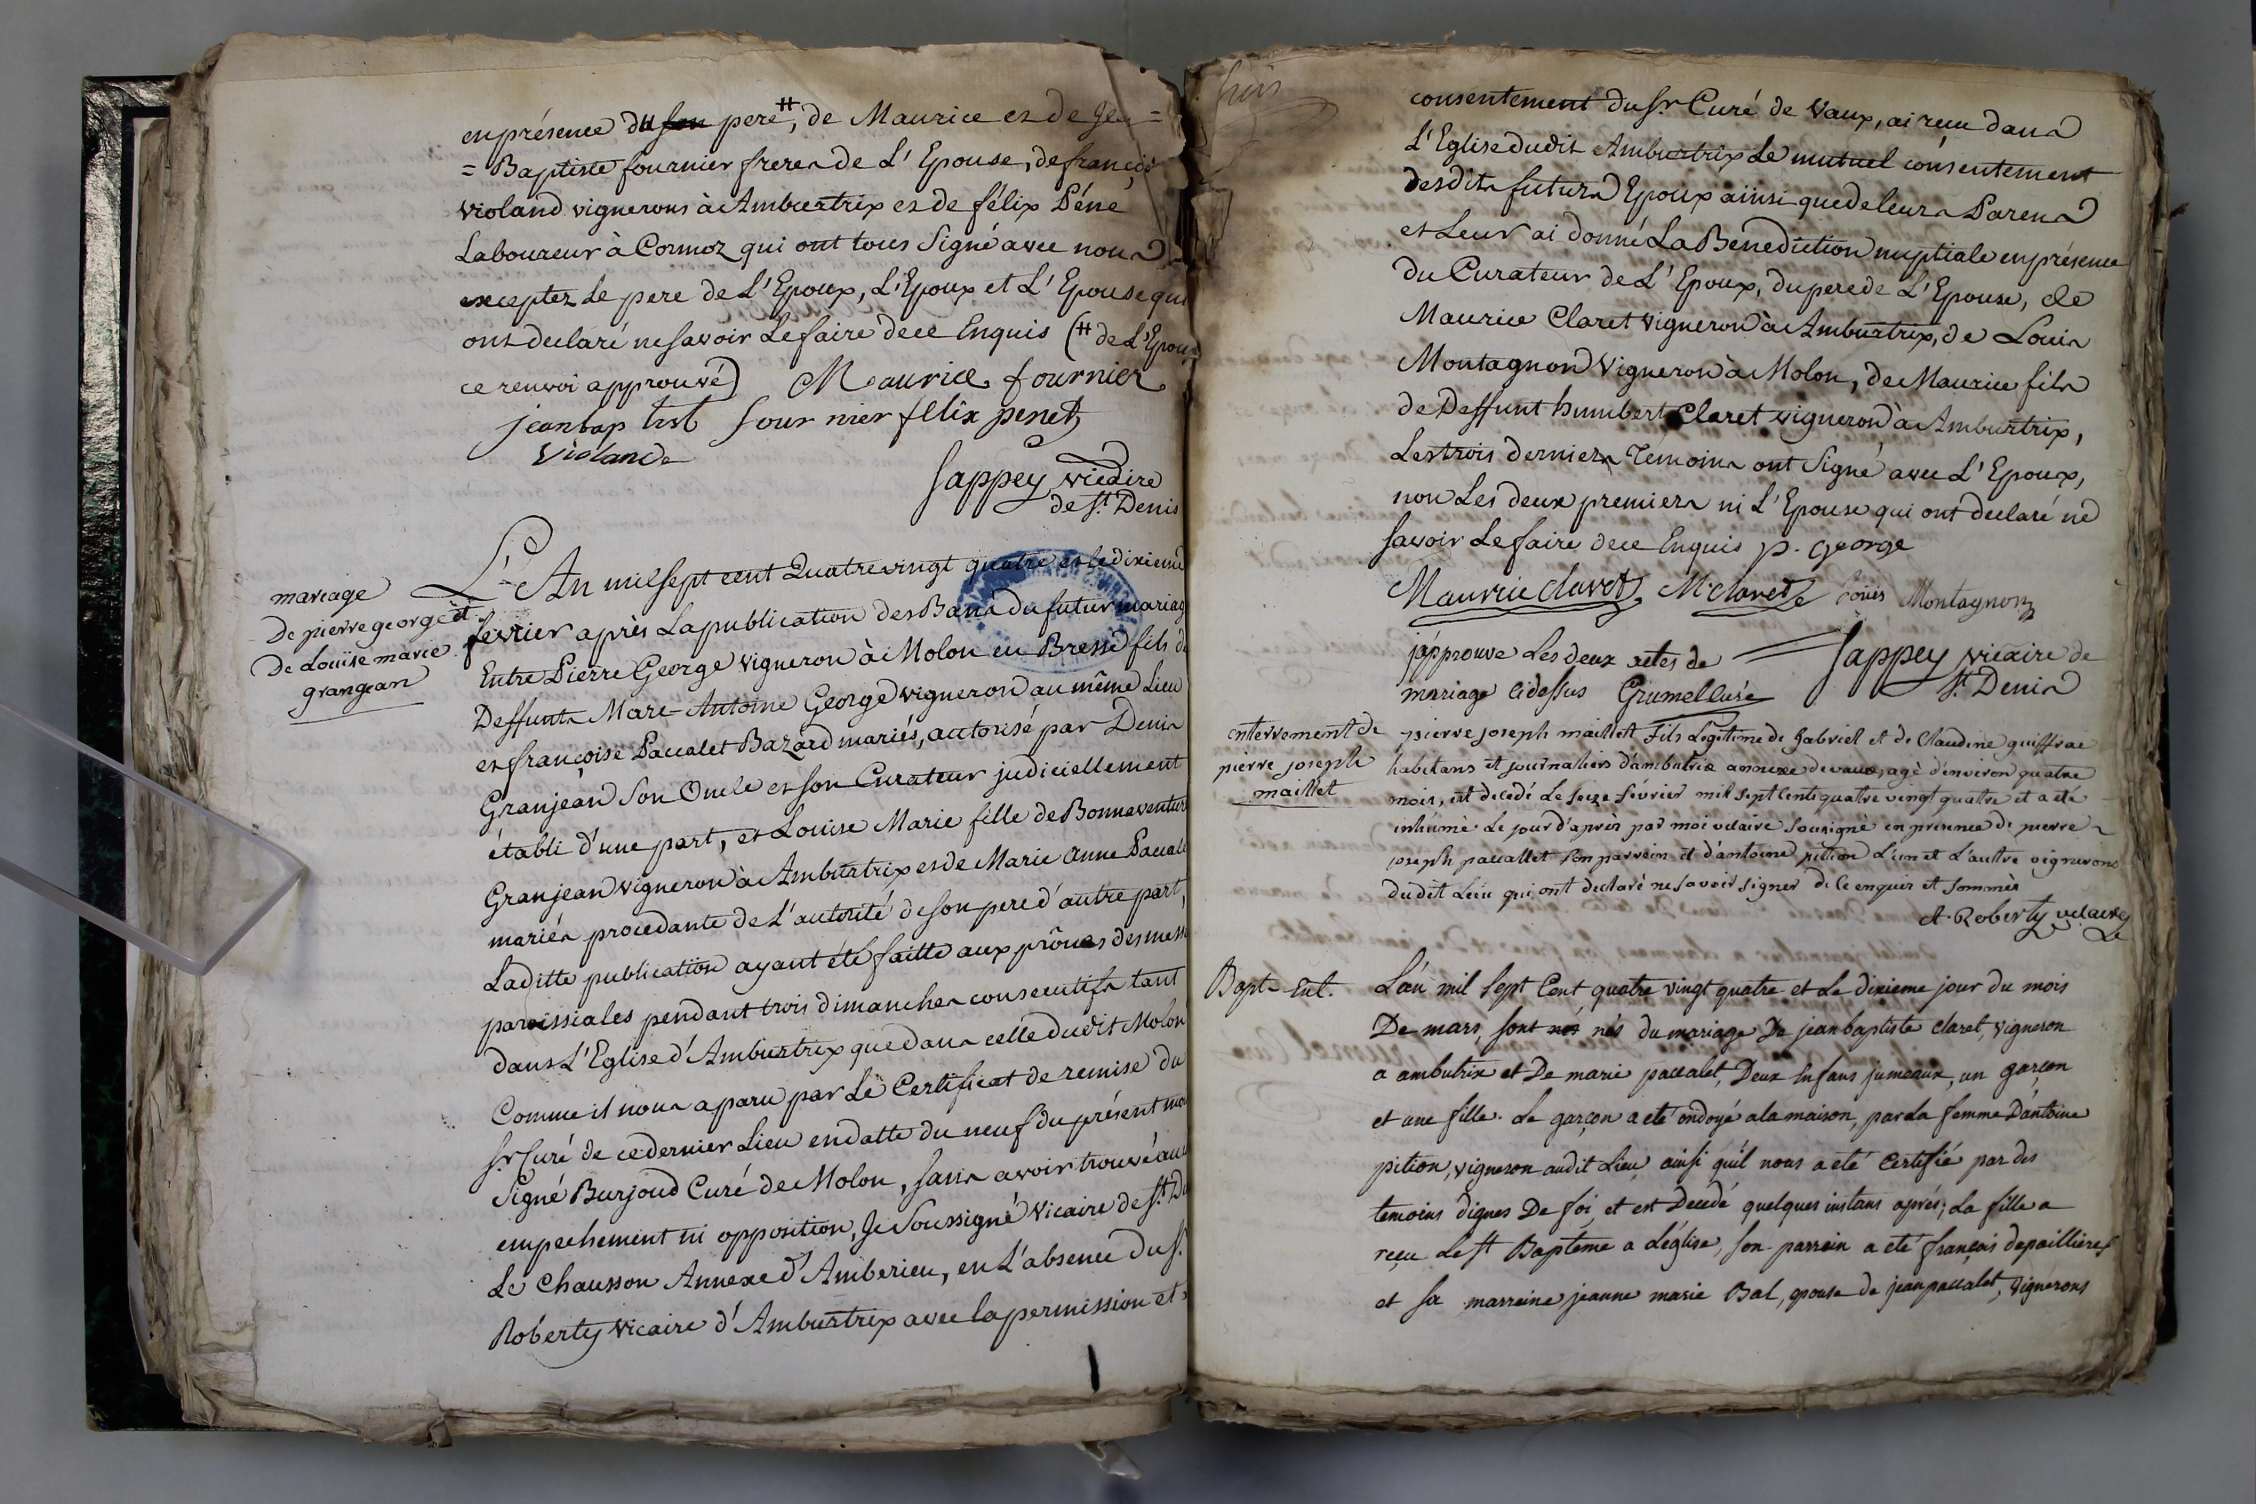 en présence du son pere ⧺, de Maurice et de Jea=
=Baptiste fournier freres de L'Epouse, de françois
violand vignerons à Ambutrix et de félix Péné
Laboureur à Cormoz qui ont tous Signé avec nous
exceptez Le pere de L'Epoux, L'Epoux et L'Epouse qui
ont declaré ne savoir Le faire de ce Enquis (⧺ de L'Epouse
ce renvoi approuvé) Maurice fournier
jean bap tist four nier felix penet
violand
Sappey vicaire
de St. Denis
mariage
De pierre george et
de Louise marie
grangean
L'An mil sept cent Quatre vingt quatre et le dixieme
fevrier après La publication des Bans du futur mariage
Entre Pierre George vigneron à Molon en Bresse fils de
Deffunts Marc-Antoine George vigneron au même Lieu
et françoise Paccalet Bazard mariés, autorisé par Denis
Granjean Son Oncle et son Curateur judiciellement
établi d'une part, et Louise Marie fille de Bonnaventure
Granjean vigneron à Ambutrix et de Marie Anne Paccalet
mariés procedante de L'autorité de son pere d'autre part,
Laditte publication ayant été faitte aux prônes des messes
paroissiales pendant trois dimanches consecutifs tant
dans L'Eglise d'Ambutrix que dans celle dudit Molon
Comme il nous a paru par Le Certificat de remise du
Sr. Curé de ce dernier Lieu en datte du neuf du présent mois
Signé Burjoud Curé de Molon, sans avoir trouvé aucun
empechement ni opposition, Je Soussigné Vicaire de St. De
Le Chausson Annexe d'Amberieu, en L'absence du S.
Roberty Vicaire d'Ambutrix avec la permission et
consentement du Sr. Curé de Vaux, ai reçu dans
L'Eglise dudit Ambutrix Le mutuel consentement
desdits futurs Epoux ainsi que de leurs Parens
et Leur ai donné La Benediction nuptiale en présence
du Curateur de L'Epoux, du pere de L'Epouse, de
Maurice Claret vigneron à Ambutrix, de Louis
Montagnon Vigneron à Molon, de Maurice fils
de Deffunt humbert Claret vigneron à Ambutrix,
Les trois derniers Témoins ont Signé avec L'Epoux,
non Les deux premiers ni L'Epouse qui ont declaré ne
savoir Le faire de ce Enquis p. george
Maurice claret M claret Louis Montagnon
j'approuve Les deux actes de Sappey vicaire de
mariage cidessus Grumel curé St. Denis
enterrement de
pierre joseph
maillet
pierre joseph maillet Fils Légitime de gabriel et de Claudine guiffrae
habitans et journaliers d'ambutrix annexe de vaux, agé d'environ quatre
mois, est decedé Le seize février mil sept cents quatre vingt quatre et a été
inhumé Le jour d'après par moi vicaire soussigné en presence de pierre
joseph paccallet son parrein et d'antoine pition L'un et L'autre vignerons
dudit Lieu qui ont declaré ne savoir signer de ce enquis et sommés
A. Roberty vicaire
Bapt. Ent.
L'an mil Sept Cent quatre vingt quatre et Le dixieme jour du mois
De mars, sont nés nés du mariage De jean baptiste claret, vigneron
a ambutrix et De marie paccalet, Deux Enfans jumeaux, un garçon
et une fille. Le garçon a eté ondoyé a la maison, par La femme D'antoine
pition, vigneron audit Lieu, ainsi qu'il nous a eté certifié par des
temoins dignes De foi, et est Decedé quelques instans après; La fille a
reçu Le St Baptême a L'église, son parrein a eté françois depaillieres
et sa marreine jeanne marie Bal, epouse de jean paccalet, vignerons